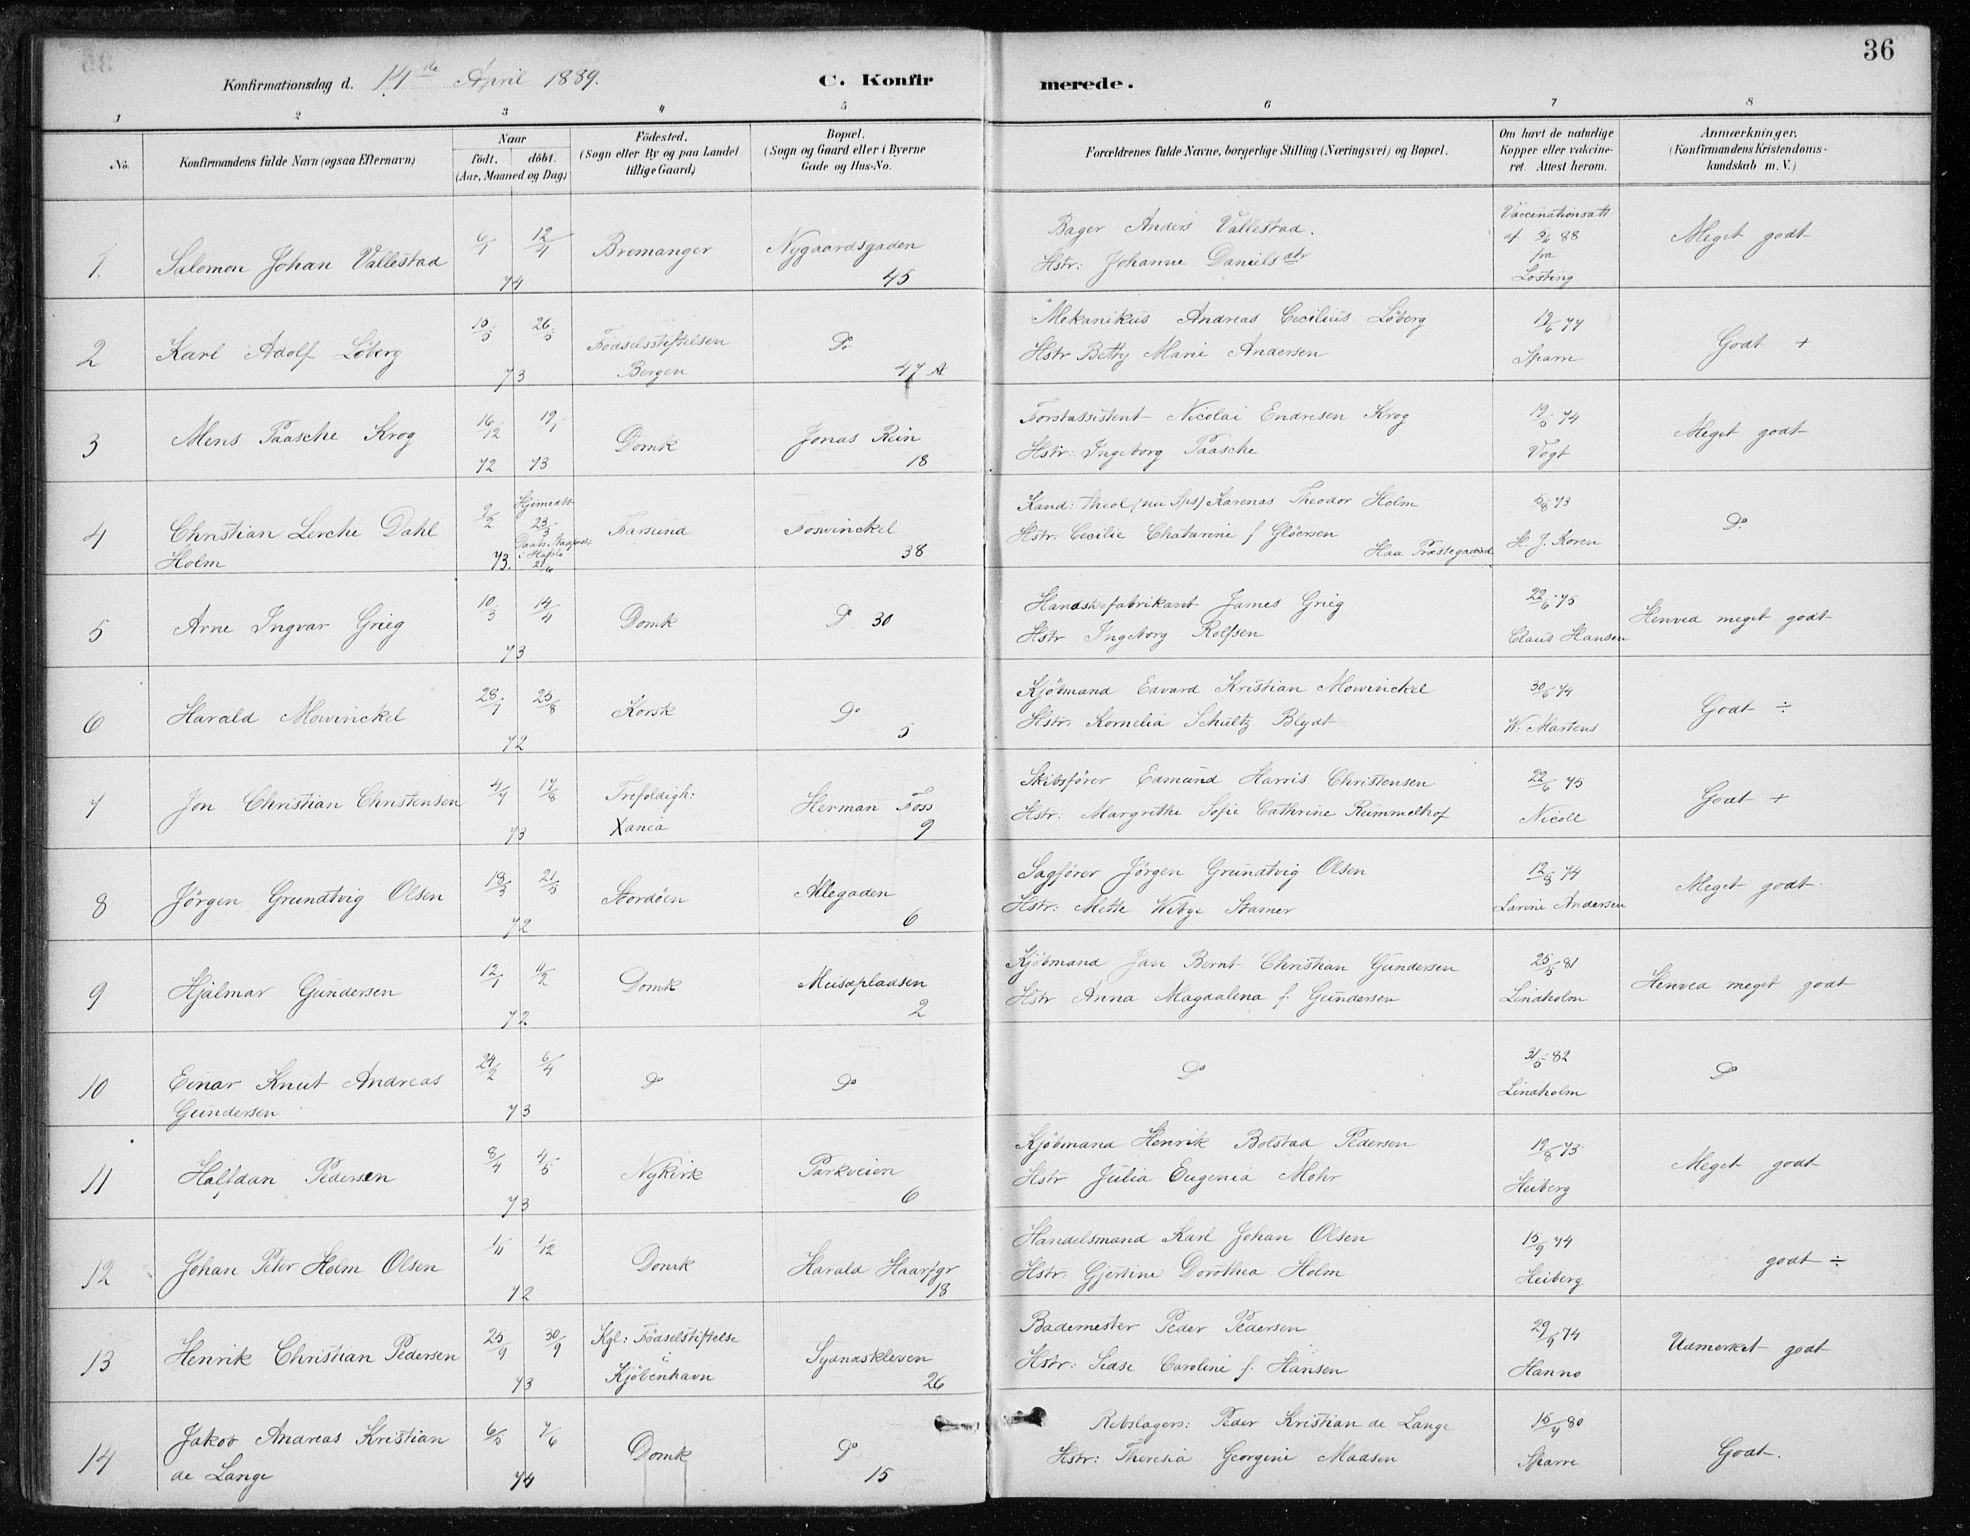 36
Konfirmationsdag d. 14de April 1889.
C. Konfir merede.
1 2 3 4 5 6 7 8
No.
Konfirmandens fulde Navn (ogsaa Efternavn)
Naar
født. døbt.
(Aar, Maaned og Dag)
Födested.
(Sogn eller By og paa Landet
tillige Gaard)
Bopæl.
(Sogn og Gaard eller i Byerne
Gade og Hus-No.
Forældrenes fulde Navne, borgerlige Stilling (Næringsvei) og Bopæl.
Om havt de naturlige
Kopper eller vakcine-
ret. Attest herom.
Anmærkninger.
(Konfirmandens Kristendoms-
kundskab m. V.)
1.
Salomon Johan Vallestad
6/1 12/4
74
Bremanger
Nygaardsgaden
45
Bager Anders Vallestad.
Hstr: Johanne Danielsdtr
Vaccinationsatt
af 88
fra
Losting
Meget godt
2
Karl Adolf Löberg
15/5 26/5
73
Fødselsstiftelsen
Bergen
Do
47 A
Mekanikus Andreas Cecilius Löberg
Hstr Betty Marie Andersen
19/6 77
Sparre
Godt +
3
Mens Paasche Krog
16/12 19/1
72 73
Domk
Jonas Rein
18
Forstassistent Nicolai Endresen Krog
Hstr: Ingeborg Paasche
19/5 74
Vogt
Meget godt
4
Christian Lerche Dahl
Holm
9/2 Hjemedøbt
23/3
i Hafslo
73. 29/6
Farsund
Foswinckel
38
Kand: theol Karenas Theodor Holm
Hstr: Cecilie Chatarine f Gløersen
Haa Præstegaard
5/8 73
H. J. Koren
Do
5
Arne Ingvar Grieg
10/3 14/4
73
Domk
Do 30
Handskefabrikant James Grieg
Hstr Ingeborg Rolfsen
22/6 75
Claus Hansen
Henved meget godt
6
Harald Mowinckel
28/7 25/8
72
Korsk
Do
5
Kjøbmand Edvard Kristian Mowinckel
Hstr: Kornelia Schultz Blydt
30/6 74
W. Martens
Godt ÷
7
Jon Christian Christensen
4/7 17/8
73
Trefoldigh:
Xania
Herman Foss
9
Skibsfører Edmund Harris Christensen
Hstr: Margrethe Sofie Cathrine Rummelhof
22/6 75
Nicoll
Godt +
8
Jörgen Grundtvig Olsen
18/3 21/5
72
Stordöen
Allegaden
6
Sagfører Jörgen Grundtvig Olsen
Hstr: Mette Wibye Stamer
12/8 74
Larine Andersen
Meget godt
9
Hjalmar Gundersen
12/1 11/2
72
Domk
Musæpladsen
2
Kjøbmand Jan Bernt Christian Gundersen
Hstr Anna Magdalena f. Gundersen
25/5 81
Lindholm
Henved meget godt
10
Einar Knut Andreas
Gundersen
24/2 6/4
73
Do
Do
Do
31/5 82
Lindholm
Do
11
Halfdan Pedersen
8/4 4/5
73
Nykirk
Parkveien
6
Kjøbmand Henrik Bolstad Pedersen
Hstr Julia Eugenia Mohr
19/8 73
Heiberg
Meget godt
12
Johan Peter Holm Olsen
1/11 1/12
72
Domk
Harald Haarfgr
18
Handelsmand Karl Johan Olsen
Hstr: Gjertine Dorothea Holm
15/9 74
Heiberg
godt ÷
13
Henrik Christian Pedersen
25/9 30/9
73
Kgl: Fødselstiftelse
i
Kjøbenhavn
Sydnæskleven
26
Bademester Peder Pedersen
Hstr: Sidse Caroline f. Hansen
29/9 74
Hanno
Udmerket godt
14
Jakob Andreas Kristian
de Lange
6/5 7/6
74
Domk
Do
15
Rebslagers: Peder Kristian de Lange
Hstr: Theresia Georgine Maasen
15/9 80
Sparre
Godt.